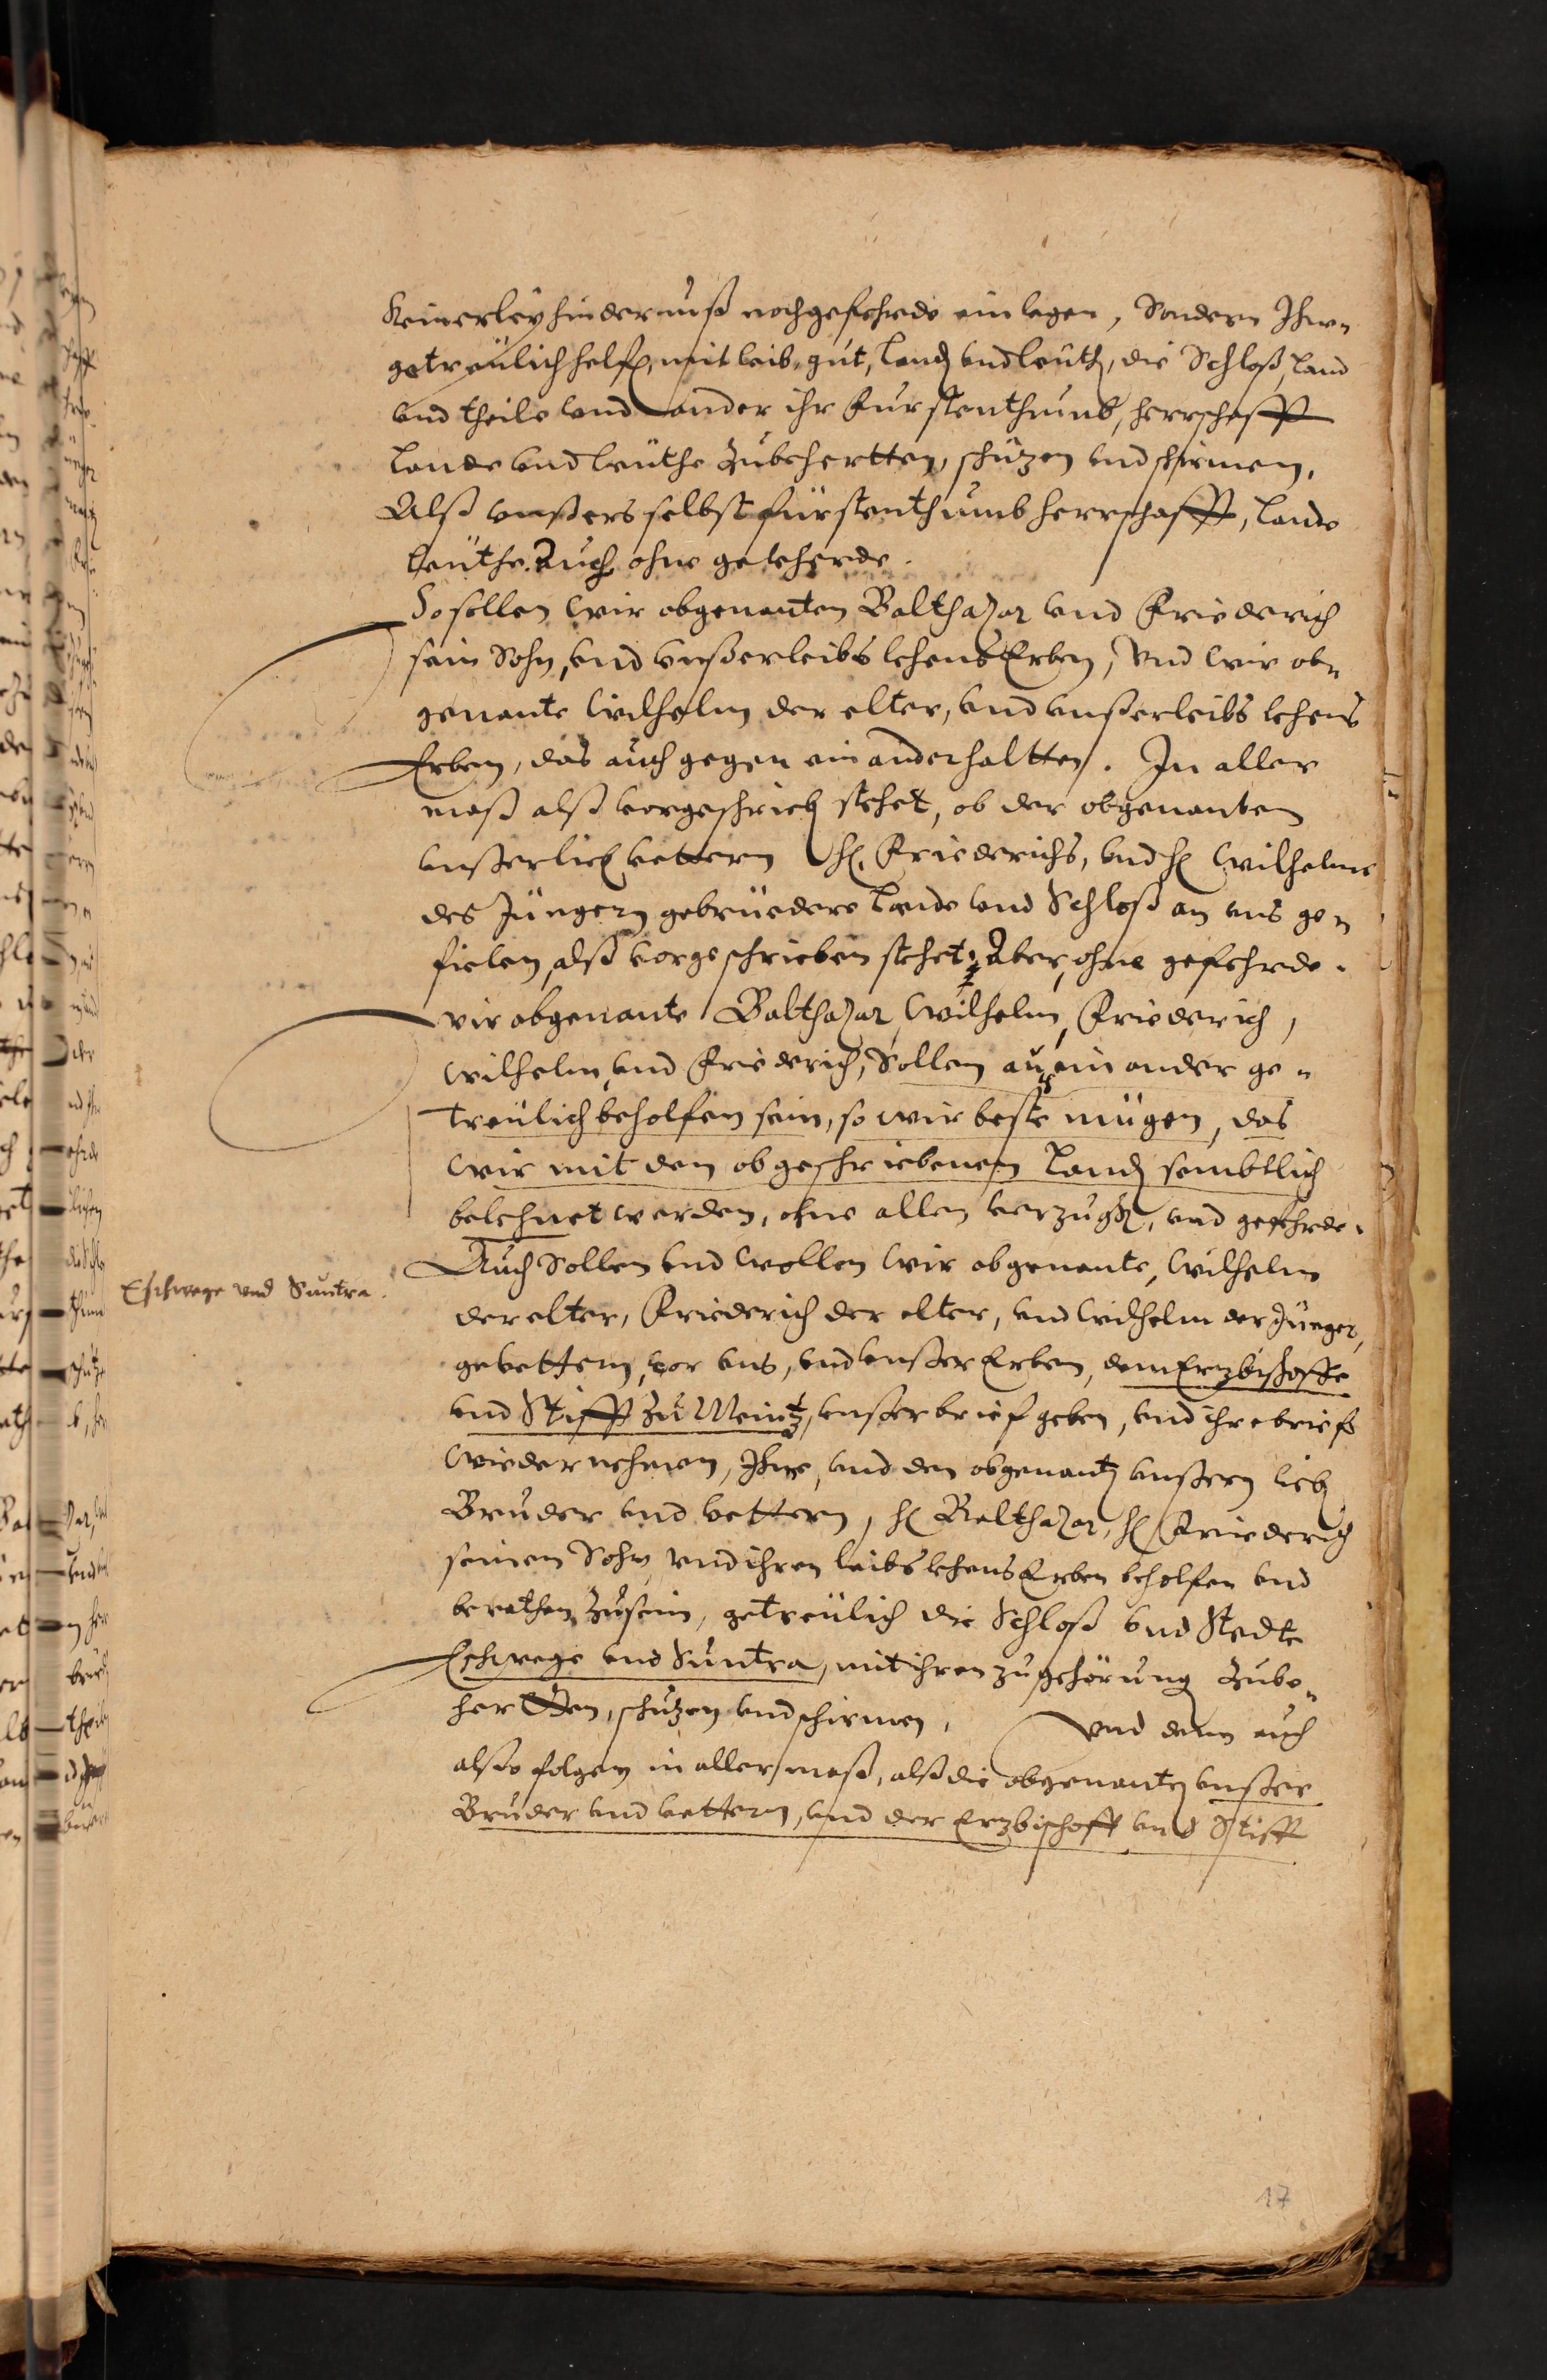 Keinerley hindernuß noch gefehrde einlegen, Sondern Ihnen
getreulich helfen, mit leib, gut, landen vnd leuthen, die Schloß, land
vnd theile vnd ander ihr Furstenthumb, herrschafft
lande vnd leuthe Zubehertten, schutzen vnd schirmen,
Alß vnßers selbst fürstenthumb herrschafft, lande
leuthe. Auch ohne geuherde.
So sollen wir obgenanten Balthasar vnd Friederich
sein Sohn, vnd vnßer leibs lehens Erben, Vnd wir ob-
genante Wilhelm der elter, vnd vnßer leibs lehens
Erben, das auch gegen ein ander haltten. In aller
maß alß vorgeschrieben stehet, ob der obgenanten
vnßer lieben vettern H. Friederichs, vnd H. Wilhelms
des Jüngern gebrüedere lande vnd Schloß an vns ge-
fielen, alß vorgeschrieben stehet, Aber ohne gefehrde.
wir obgenante Balthasar, Wilhelm, Friederich,
Wilhelm, vnd Friederich, Sollen auch ein ander ge-
treulich beholfen sein, so wir beste mügen, das
wir mit den obgeschriebenen landen sembtlich
belehnet werden, ohne allen verzugk, vnd gefehrde.
Eschwege vnd Suntra.
Auch Sollen vnd wollen wir obgenante, Wilhelm
der elter, Friederich der elter, vnd Wilhelm der Junger,
gevettern, vor vns, vnd vnßer Erben, dem Erzbischoffe
vnd Stifft zu Meintz, vnßer brief geben, vnd ihre brief
wieder nehmen, Ihme, vnd den obgenanten vnßern lieben
Bruder vnd vettern, H. Balthasar, H. Friederich
seinem Sohn, vnd ihren leibs lehens Erben beholfen vnd
berathen Zusein, getreulich die Schloß vnd Stedte
Eschwege vnd Suntra, mit ihren zugehörung Zube-
hertten, schutzen vnd schirmen, Vnd denn auch
alßo folgen in aller maß, alß die obgenanten vnßer
Bruder vnd vettern, vnd der Erzbischoff vnd Stifft
17